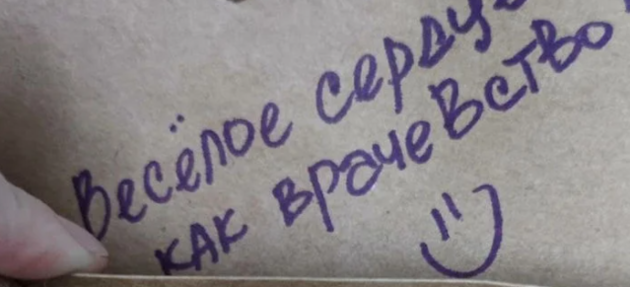 Весёлое сердц
как врачевство